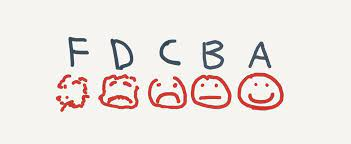 F D C B A